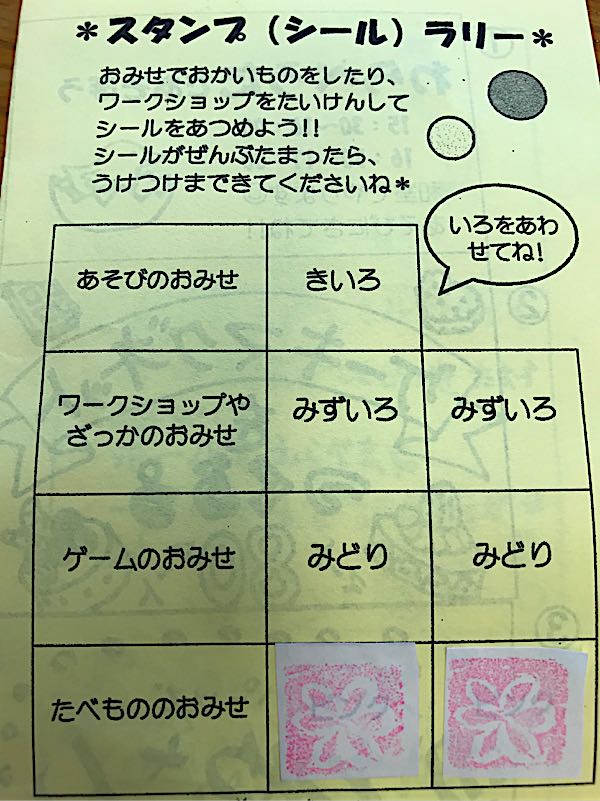 ＊スタンプ（シール）ラリー＊
おみせでおかいものをしたり、
ワークショップをたいけんして
シールをあつめよう!!
シールがぜんぶたまったら、
うけつけまできてくださいね＊
いろをあわ
せてね!
あそびのおみせ きいろ
ワークショップや
ざっかのおみせ みずいろ みずいろ
ゲームのおみせ みどり みどり
たべもののおみせ